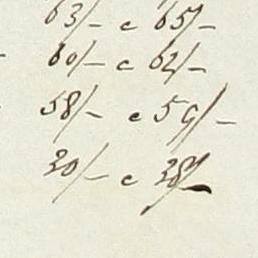 63/– c 65/–
60/– c 62/–
58/– c 59/–
20/– c 28/–